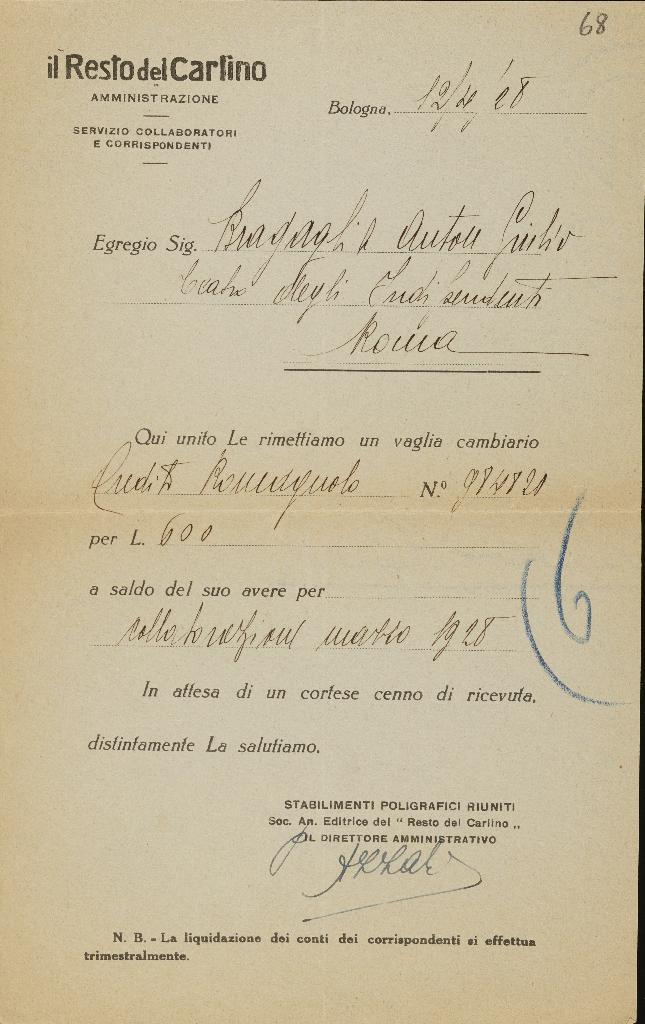 68
il Resto del Carlino
AMMINISTRAZIONE
SERVIZIO COLLABORATORI
E CORRISPONDENTI
Bologna, 12/4/'28
Egregio Sig. Bragaglia Anton Giulio
Teatro degli Indipendenti
Roma
Qui unito Le rimettiamo un vaglia cambiario
Credito Romagnolo N.º 984820
per L. 600
a saldo del suo avere per
collaborazione marzo 1928
In attesa di un cortese cenno di ricevuta,
distintamente La salutiamo.
STABILIMENTI POLIGRAFICI RIUNITI
Soc. An. Editrice del " Resto del Carlino „
IL DIRETTORE AMMINISTRATIVO
N. B. - La liquidazione dei conti dei corrispondenti si effettua
trimestralmente.